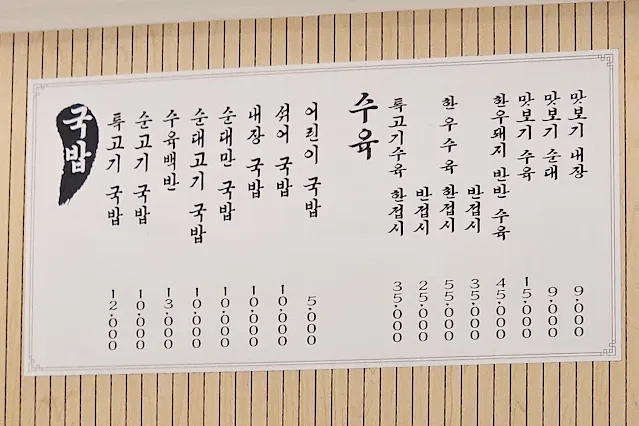 국밥
특고기 국밥 12.000
순고기 국밥 10.000
수육백반 13.000
순대고기 국밥 10.000
순대만 국밥 10.000
내장 국밥 10.000
섞어 국밥 10.000
어린이 국밥 5.000
수육
특고기수육 한접시 35.000
반접시 25.000
한우수육 한접시 55.000
반접시 35.000
한우돼지 반반 수육 45.000
맛보기 수육 15.000
맛보기 순대 9.000
맛보기 내장 9.000